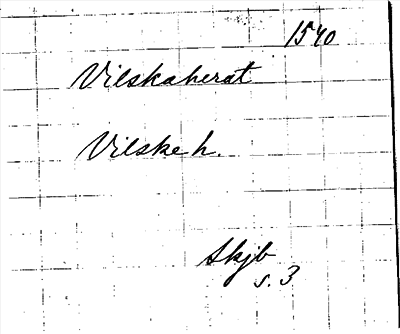 1540
Vilskaherat
Vilske h.
Skjb
s. 3